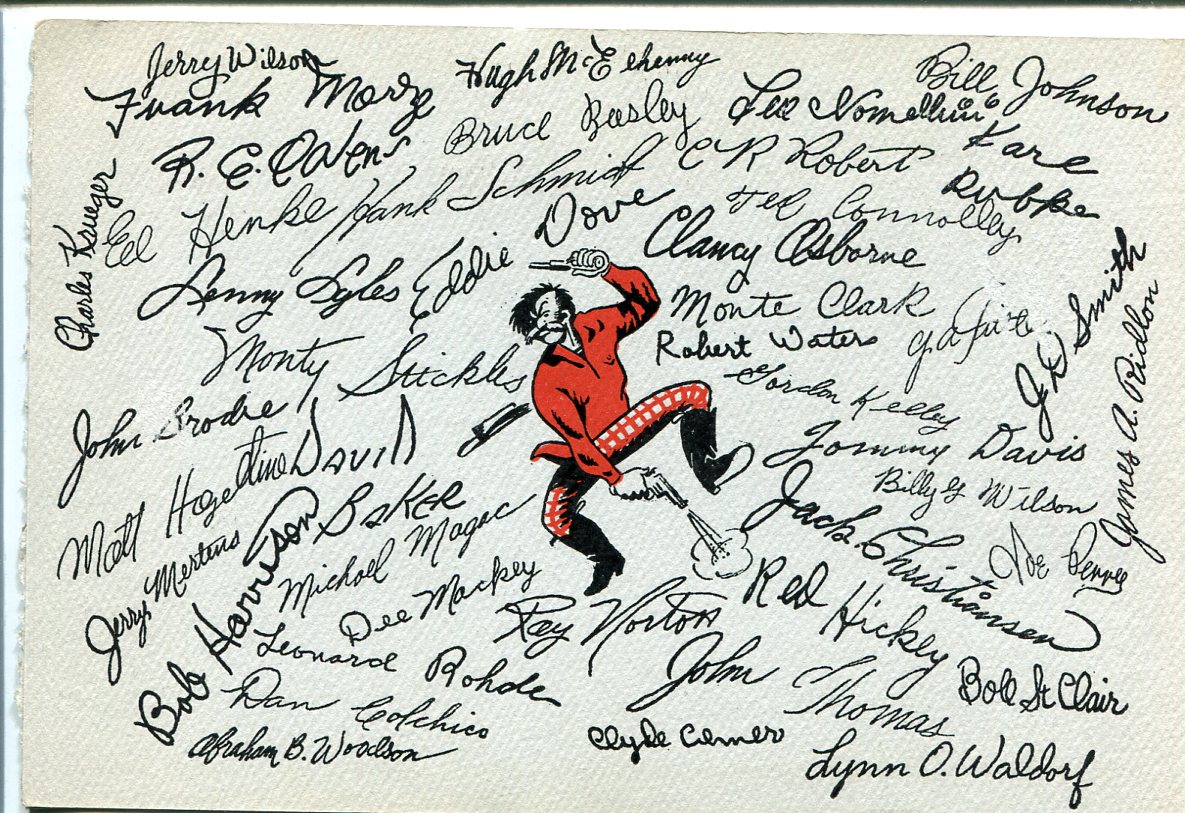 Jerry Wilson
Hugh McElhenny
Bill Johnson
Frank Morze
Bruce Bosley
Leo Nomellini
R. C. Owens
C R Roberts
Karl Rubke
Charles Krueger
Ed Henke
Hank Schmidt
Ted Connolley
Lenny Lyles
Eddie Dove
Clancy Osborne
Monte Clark
J D Smith
Monty Stickles
Robert Waters
James A. Ridlon
Gordon Kelley
John Brodie
Tommy Davis
Matt Hazeltine
David Baker
Billy G Wilson
Jerry Mertens
Bob Harrison
Michael Magac
Jack Christiansen
Joe Perry
Dee Mackey
Ray Norton
Red Hickey
Leonard Rohde
John Thomas
Bob St Clair
Dan Colchico
Abraham B. Woodson
Clyde Conner
Lynn O. Waldorf